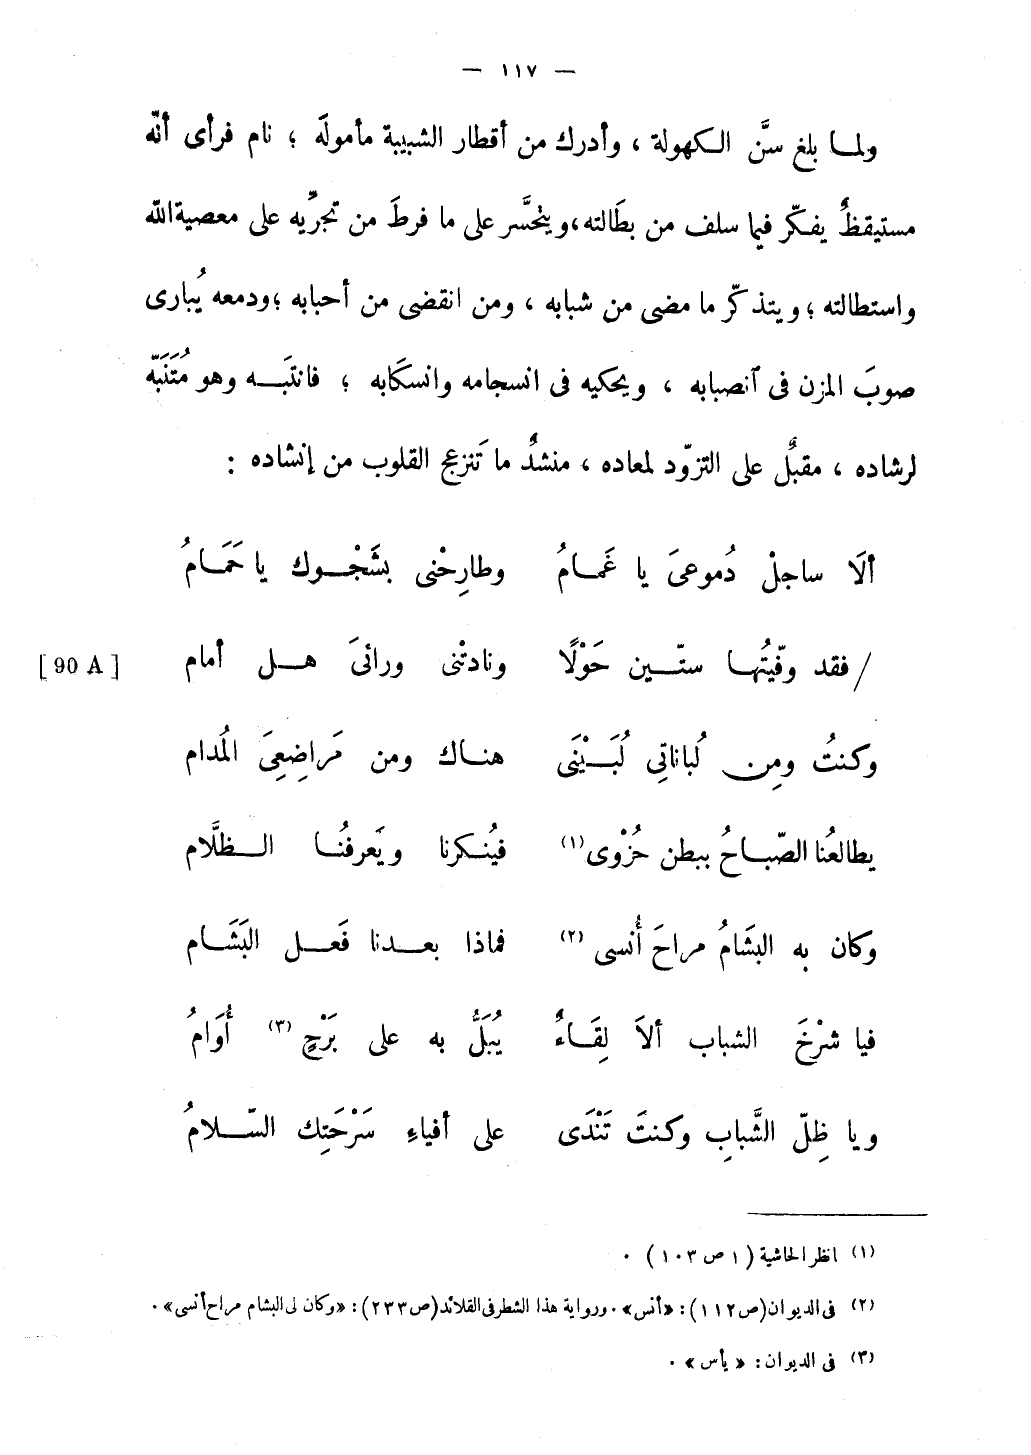 — ١١٧ —
ولمـا بلغ سنَّ الكهولة ، وأدرك من أقطار الشبيبة مأمولَه ؛ نام فرأى أنّه
مستيقظٌ يفكّر فيما سلف من بطَالته، ويتحَّسر على ما فرطَ من تجرِّيه على معصية الله
واستطالته ؛ ويتذكّر ما مضى من شبابه ، ومن انقضى من أحبابه ؛ ودمعه يُبارى
صوبَ المزن فى ٱنصبابه ، ويحكيه فى انسجامه وانسكَابه ؛ فانتَبـه وهو مُتَنَبّه
لرشاده ، مقبلٌ على التزوّد لمعاده ، منشدٌ ما تَنزعج القلوب من إنشاده :
ألَا ساجلْ دُموعىَ يا غَمـامُ وطارِحْنى بشَجْـوك يا حَمَـامُ
/ فقد وفّيتُهـا ستّـين حَوْلًا ونادتْنى ورائىَ هـل أمام
[ 90 A ]
وكنتُ ومِن لُباناتِي لُبَـيْنَى هنـاك ومن مَراضِعِىَ المُدام
يطالعُنا الصّبـاحُ ببطن حُزْوى (١) فيُنـكرنا ويَعرفُنـا الـظلَّام
وكان به البشَامُ مراحَ أُنسى (٢) فماذا بعـدنا فَعـل البَشَـام
فيا شرْخَ الشباب ألاَ لِقَـاءٌ يُبَلُّ به على بَرْحٍ (٣) أُوَامُ
ويا ظِلّ الشَّبابِ وكنتَ تَنْدَى على أفياءِ سَرْحَتِك السّـلامُ
(١) انظر الحاشية ( ١ ص ١٠٣ ) .
(٢) فى الديوان (ص ١١٢) : «أنس» . ورواية هذا الشطر فى القلائد (ص ٢٣٣) : «وكان لى البشام مراح أنسى» .
(٣) فى الديوان : « يأس » .